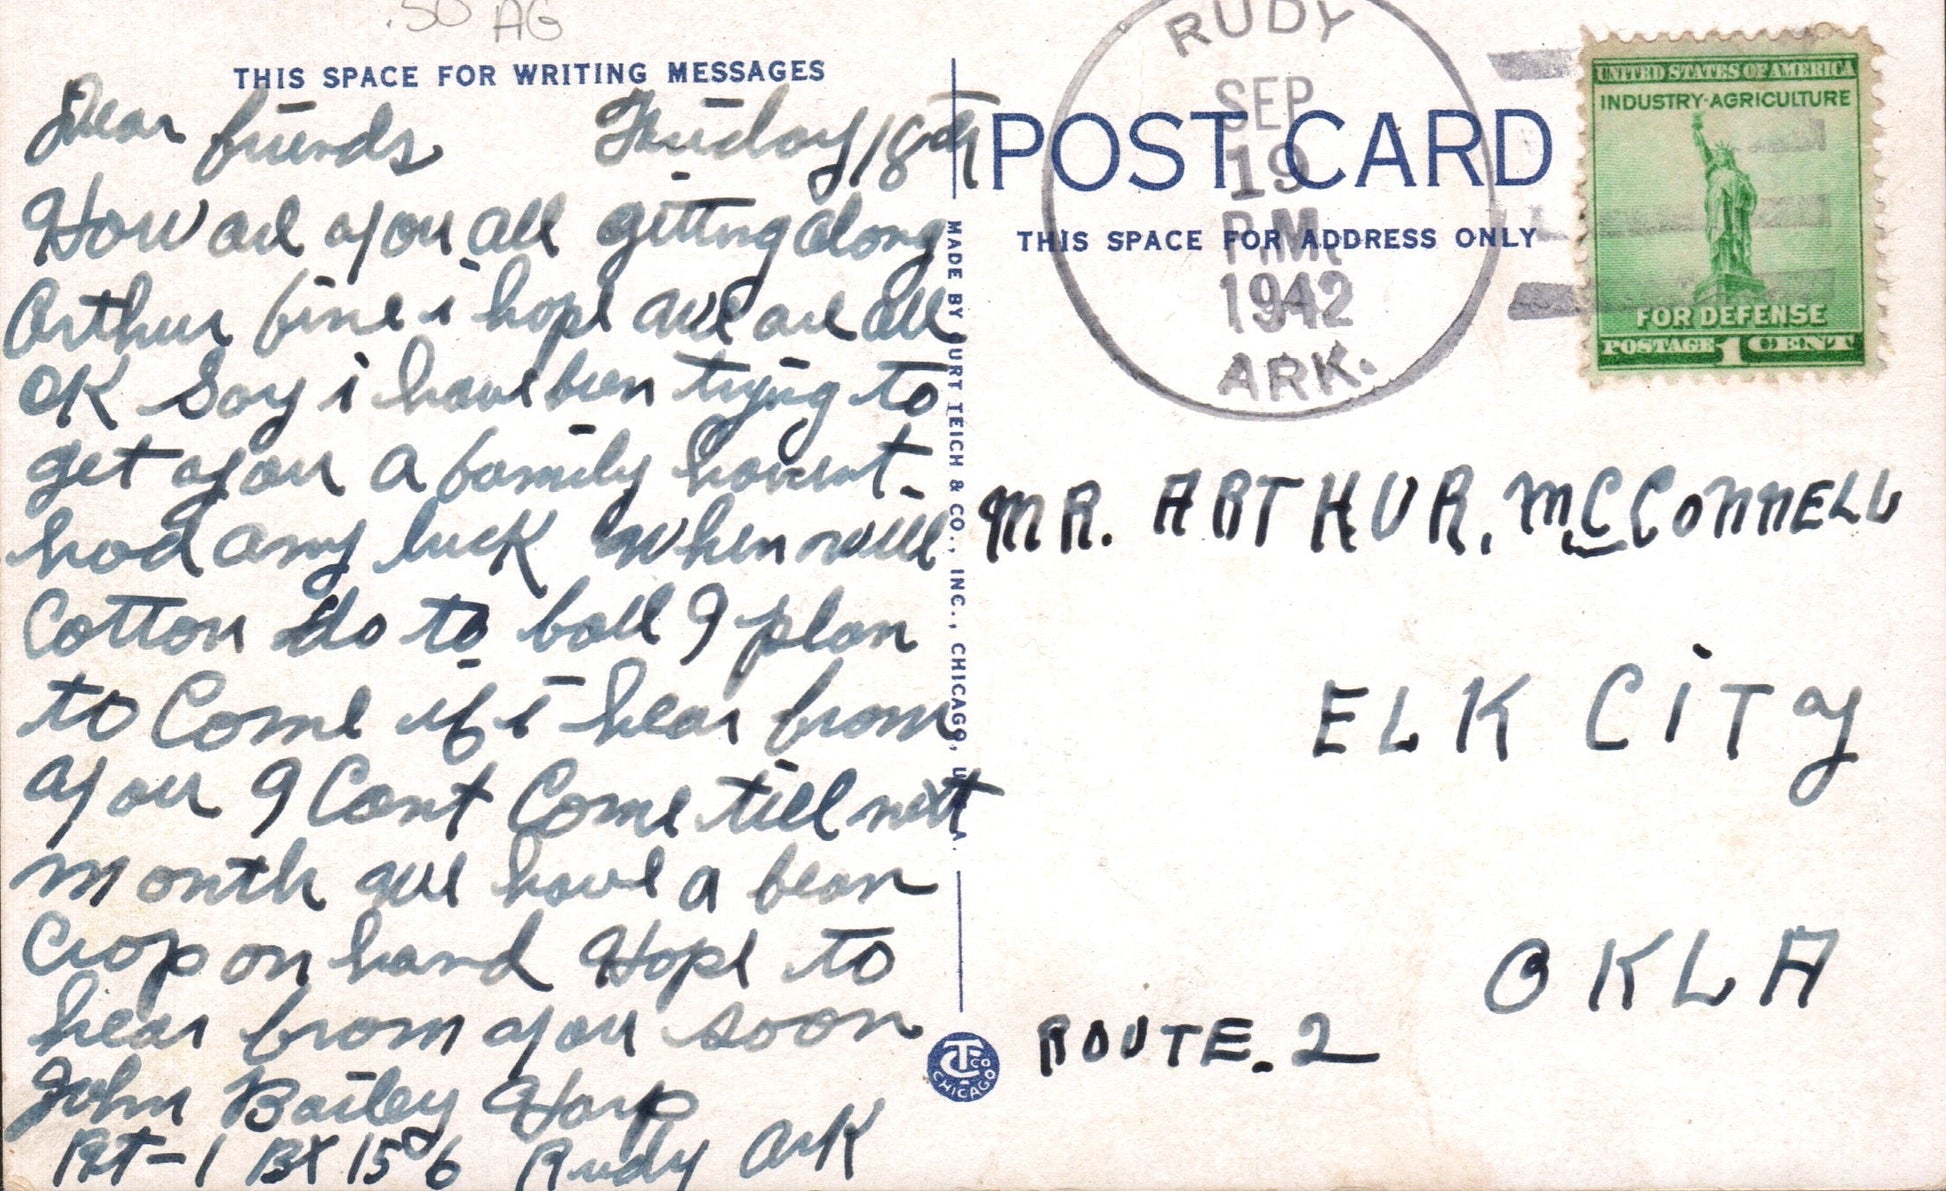 .50 AG
THIS SPACE FOR WRITING MESSAGES
Dear friends Friday 18th
How are you all getting along
Arthur fine i hope we are all
OK Say i have been trying to
get you a family havent
had any luck When will
Cotton do to boll I plan
to Come if i hear from
you I Cant Come till next
month we have a bean
Crop on hand Hope to
hear from you soon
John Bailey Harp
Rt-1 BX 156 Rudy Ark
MADE BY CURT TEICH & CO., INC., CHICAGO, U.S.A.
CTCO
CHICAGO
POST CARD
THIS SPACE FOR ADDRESS ONLY
RUDY
SEP
19
P.M.
1942
ARK.
UNITED STATES OF AMERICA
INDUSTRY-AGRICULTURE
FOR DEFENSE
POSTAGE 1 CENT
MR. ARTHUR. McCONNELL
ELK CiTy
OKLA
ROUTE. 2